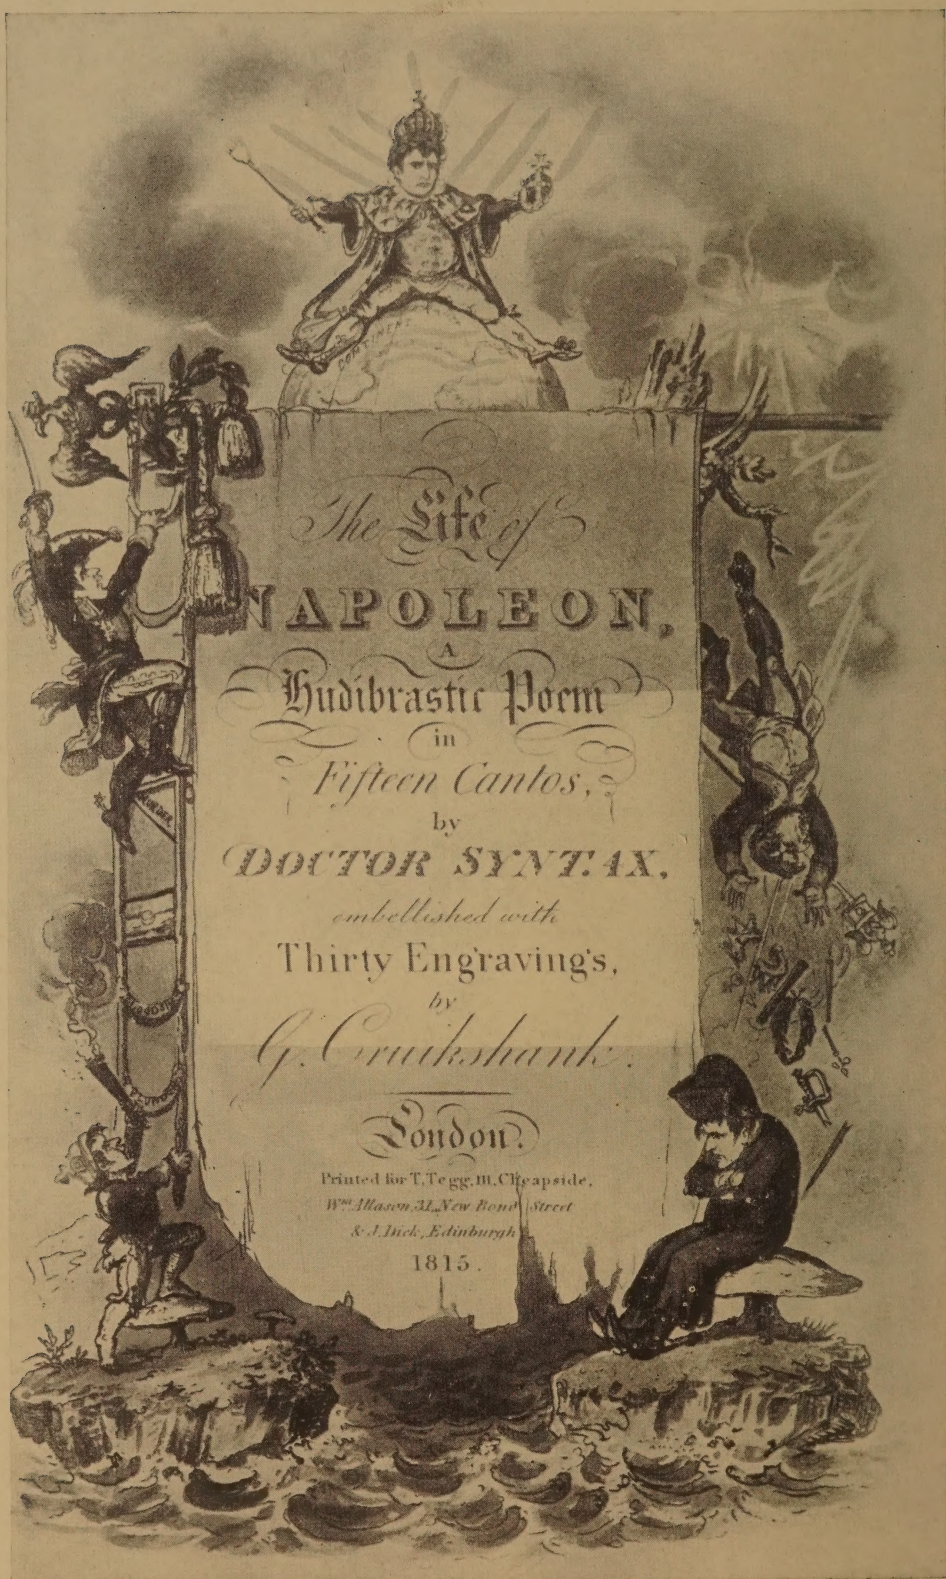 CONTINENT
The Life of
NAPOLEON,
A
Hudibrastic Poem
in
Fifteen Cantos,
by
DOCTOR SYNTAX,
embellished with
Thirty Engraving's,
by
G. Cruikshank.
London.
Printed for T. Tegg, 111, Cheapside,
Wm. Allason, 31, New Bond Street
& J. Dick, Edinburgh
1815.